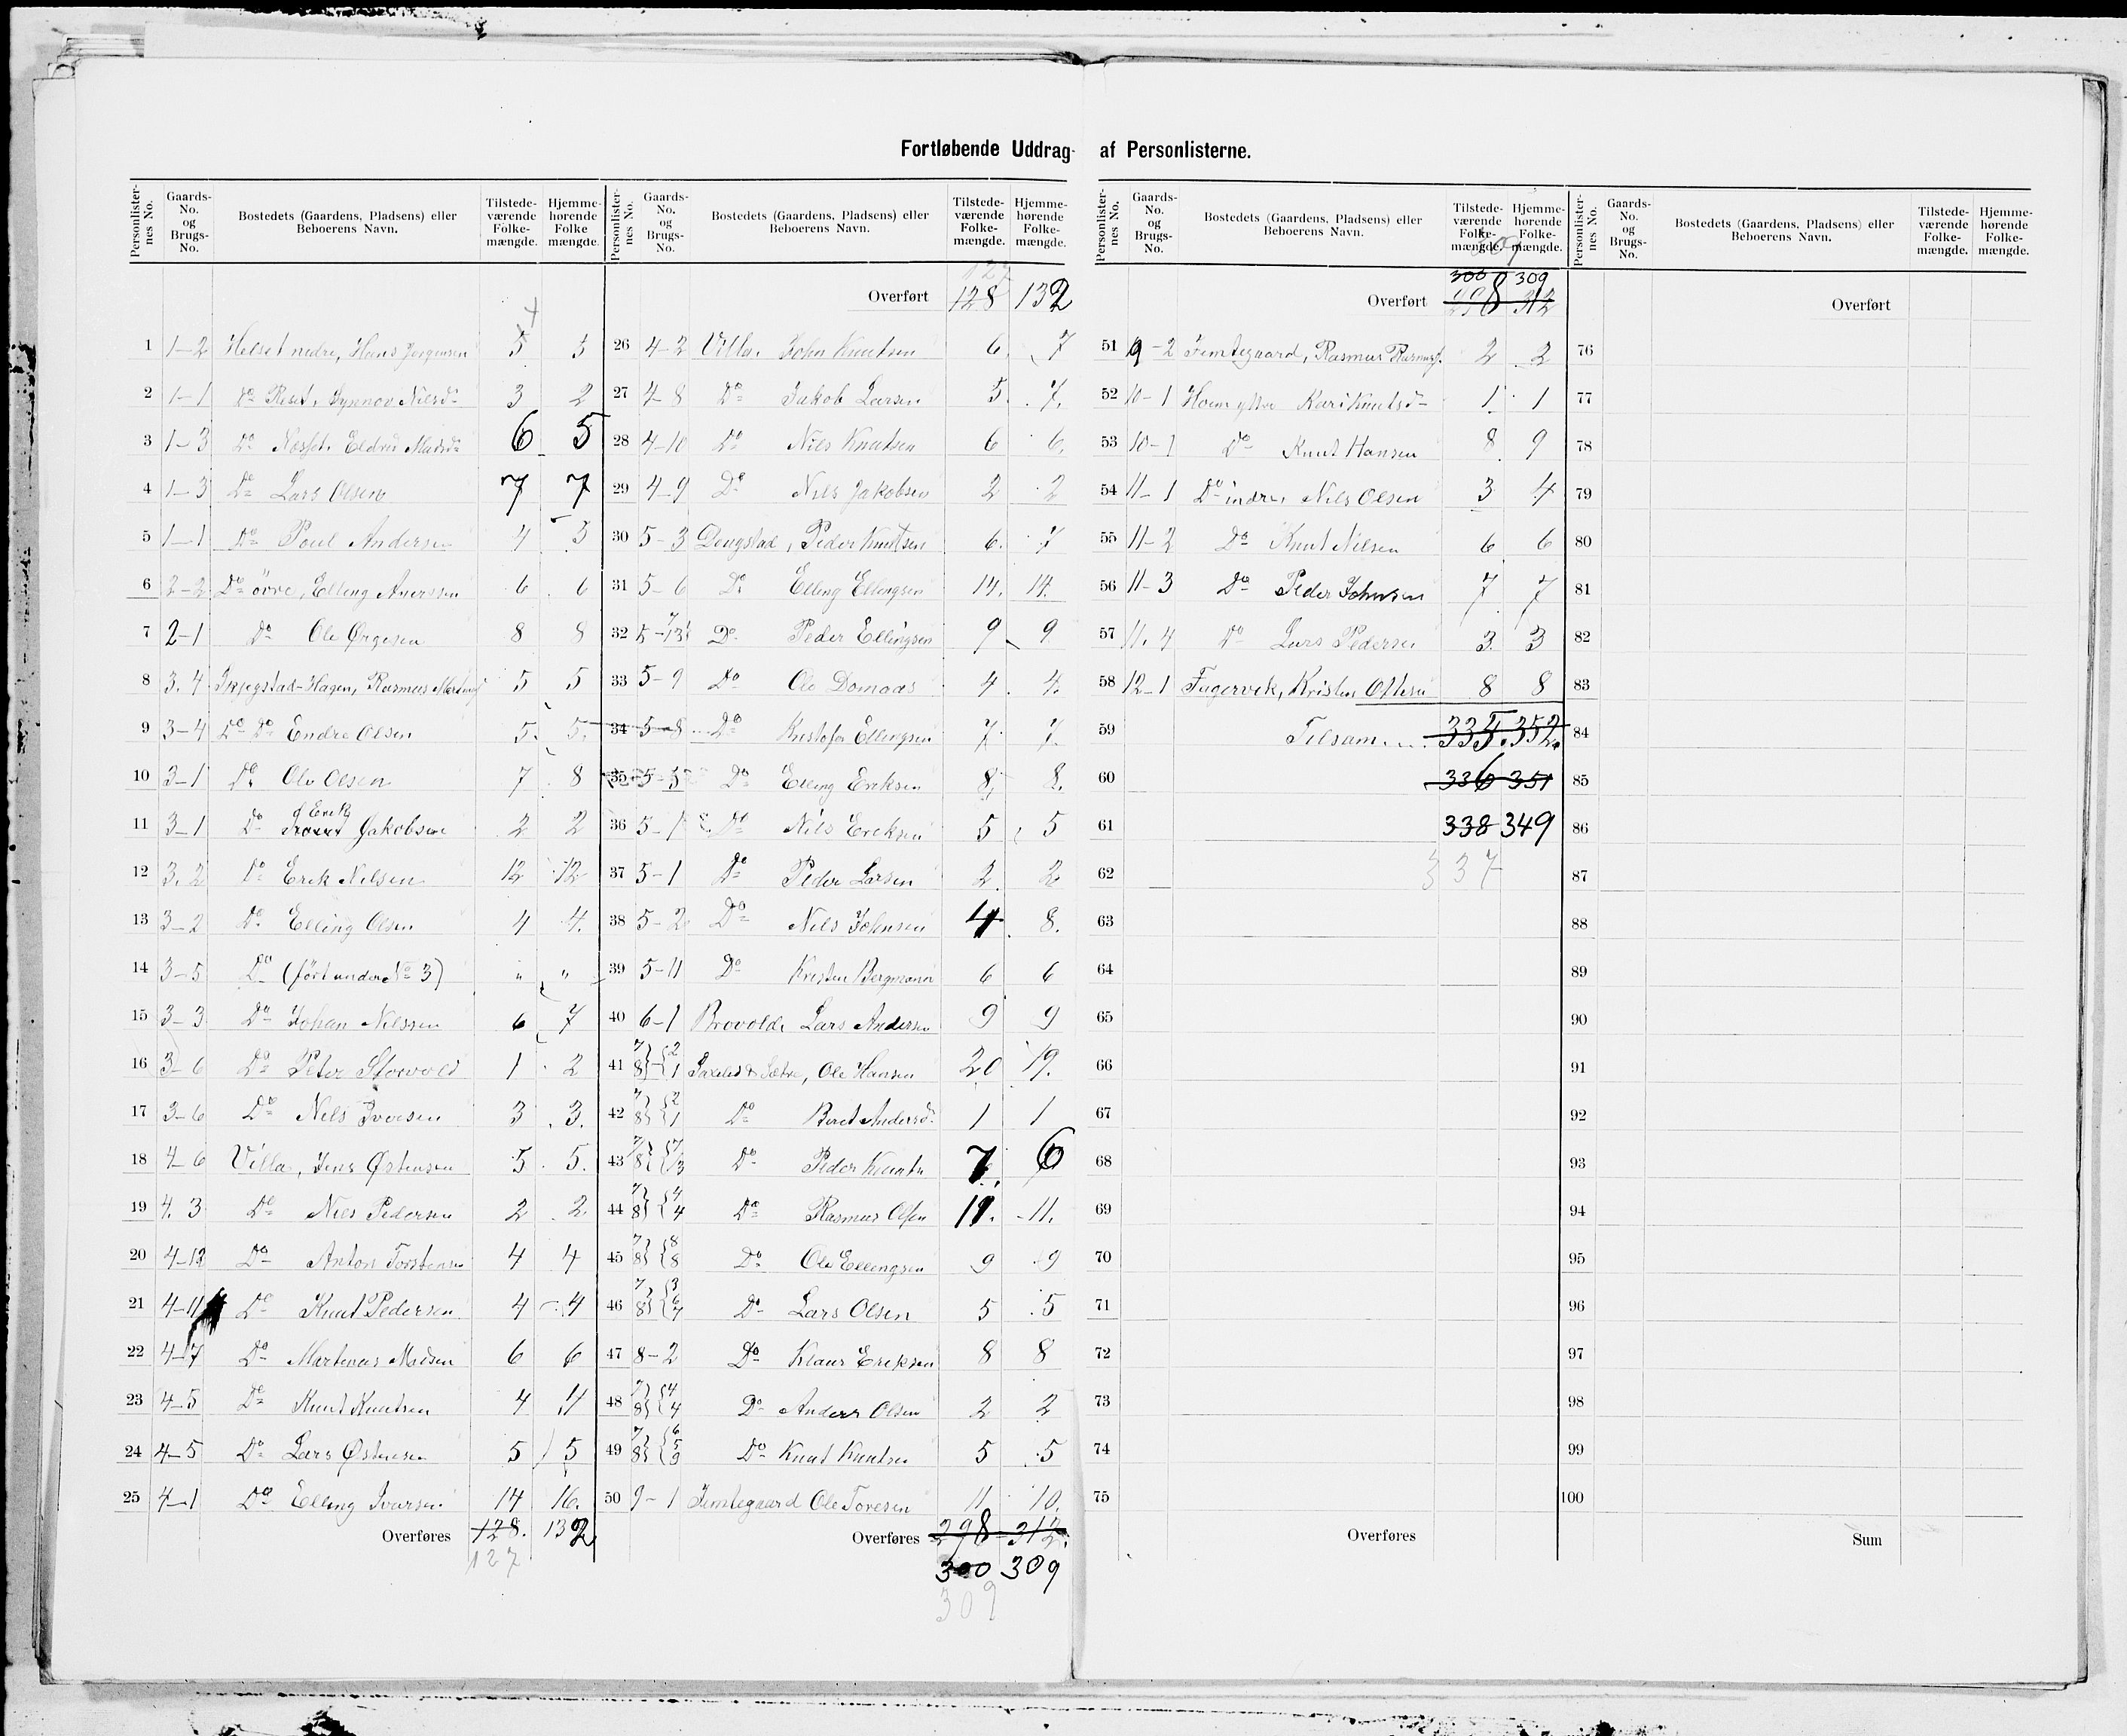 Fortløbende Uddrag af Personlisterne.
Personlisternes No. Gaards-No. og Brugs-No. Bostedets (Gaardens, Pladsens) eller Beboerens Navn. Tilstedeværende Folkemængde. Hjemmehørende Folke mængde.
1 1-2 Helset nedre, Hans Jørgensen 5 5
2 1-1 Do Reset, Synnøv Nilsd. 3 2
3 1-3 Do Eldrid Madsd. 6 5
4 1-3 Do Lars Olsen 7 7
5 1-1 Do Poul Andersen 4 5
6 2-2 Do övre, Elling 6 6
7 2-1 Do Ole 8 8
8 3.4 Rasmus 5 5
9 3-4 Do Do Endre Olsen 5. 5.
10 3-1 Do Ole Olsen 7 8
11 3-1 Do Erik Jakobsen 2 2
12 3.2 Do Erik Nilsen 12 12
13 3-2 Do Elling Olsen 4 4.
14 3-5 Do (fört under No 3) " "
15 3-3 Do Johan Nilssen 6 7
16 3-6 Do Peter 1 2
17 3-6 Do Nils Iversen 3 3.
18 4-6 Villa, Jens Østensen 5 5.
19 4.3 Do Nils Pedersen 2 2
20 4-12 Do Anton Torstensen 4 4
21 4-11 Do Knut Pedersen 4 4
22 4-7 Do Martinus Madsen 6 6
23 4-5 Do Knut Knutsen 4 4
24 4-5 Do Lars Østensen 5 5
25 4-1 Do Elling Ivarsen 14 16.
Overføres 128. 132
127
Personlisternes No. Gaards-No. og Brugs-No. Bostedets (Gaardens, Pladsens) eller Beboerens Navn. Tilstedeværende Folkemængde. Hjemmehørende Folkemængde.
127
Overført 128 132
26 4-2 Villa. John Knutsen 6 7
27 4-8 Do Jakob Larsen 5. 7.
28 4-10 Do Nils Knutsen 6 6.
29 4-9 Do Nils Jakobsen 2 2
30 5-3 Dengstad, Peder Knutsen 6. 7
31 5-6 Do Elling Ellingsen 14. 14.
32 5-13 7 Do Peder Ellingsen 9 9
33 5-9 Do Ole Domaas 4 4.
34 5-8 Do Kristofer Ellingsen 7 7.
35 5-5 Do Elling Eriksen 8. 8.
36 5-1 Do Nils Ereksen 5 5
37 5-1 Do Peder Larsen 2 2
38 5-2 Do Nils Johnsen 4 8.
39 5-11 Do Kristen Bergmann 6 6
40 6-1 Brovold, Lars Andersen 9 9
41 7 8 2 1 Ole Hansen 20 19.
42 7 8 2 1 Do Beret Andersd. 1 1
43 7 8 7 3 Do Peder 7 6
44 7 8 4 4 Do Rasmus Olsen 11. 11.
45 7 8 8 8 Do Ole Ellingsen 9 9
46 7 8 3 6 7 Do Lars Olsen 5 5
47 8-2 Do Klaus Ereksen 8 8
48 7 8 4 4 Do Anders Olsen 2 2
49 7 8 6 5 9 Do Knut Knutsen 5 5
50 9-1 Femtegaard Ole Toresen 11 10.
Overføres 298 312.
300 309
309
Personlisternes No. Gaards-No. og Brugs-No. Bostedets (Gaardens, Pladsens) eller Beboerens Navn. Tilstedeværende Folkemængde. Hjemmehørende Folkemængde.
300 309
Overført 298 312
51 9-2 Femtegaard, Rasmus 2 2
52 10-1 Hoem ytre Kari Knutsd. 1 1
53 10-1 Do Knut Hansen 8 9
54 11-1 Do indre, Nils Olsen 3 4
55 11-2 Do Knut Nilsen 6 6
56 11-3 Do Peder Johnsen 7 7
57 11.4 Do Lars Pedersen 3. 3
58 12-1 Fagervik, Kristen 8 8
59 Tilsam.... 335. 352.
60 336 351
61 338 349
62 337
63
64
65
66
67
68
69
70
71
72
73
74
75
Overføres
Personlisternes No. Gaards-No. og Brugs-No. Bostedets (Gaardens, Pladsens) eller Beboerens Navn. Tilstedeværende Folkemængde. Hjemmehørende Folkemængde.
Overført
76
77
78
79
80
81
82
83
84
85
86
87
88
89
90
91
92
93
94
95
96
97
98
99
100
Sum